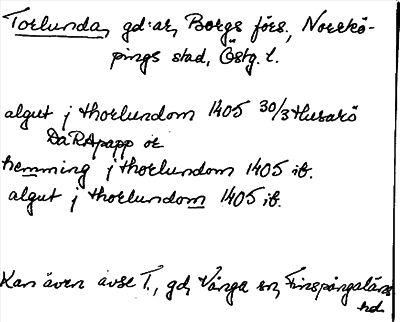 Torlunda, gd:ar, Borgs förs., Norrkö-
pings stad, Östg. l.
algut j thorlundom 1405 30/3 Husarö
DaRApapp or
hemming j thorlundom 1405 ib.
algut j thorlundom 1405 ib.
Kan även avse T., gd, Vånga sn, Finspångaläns
hd